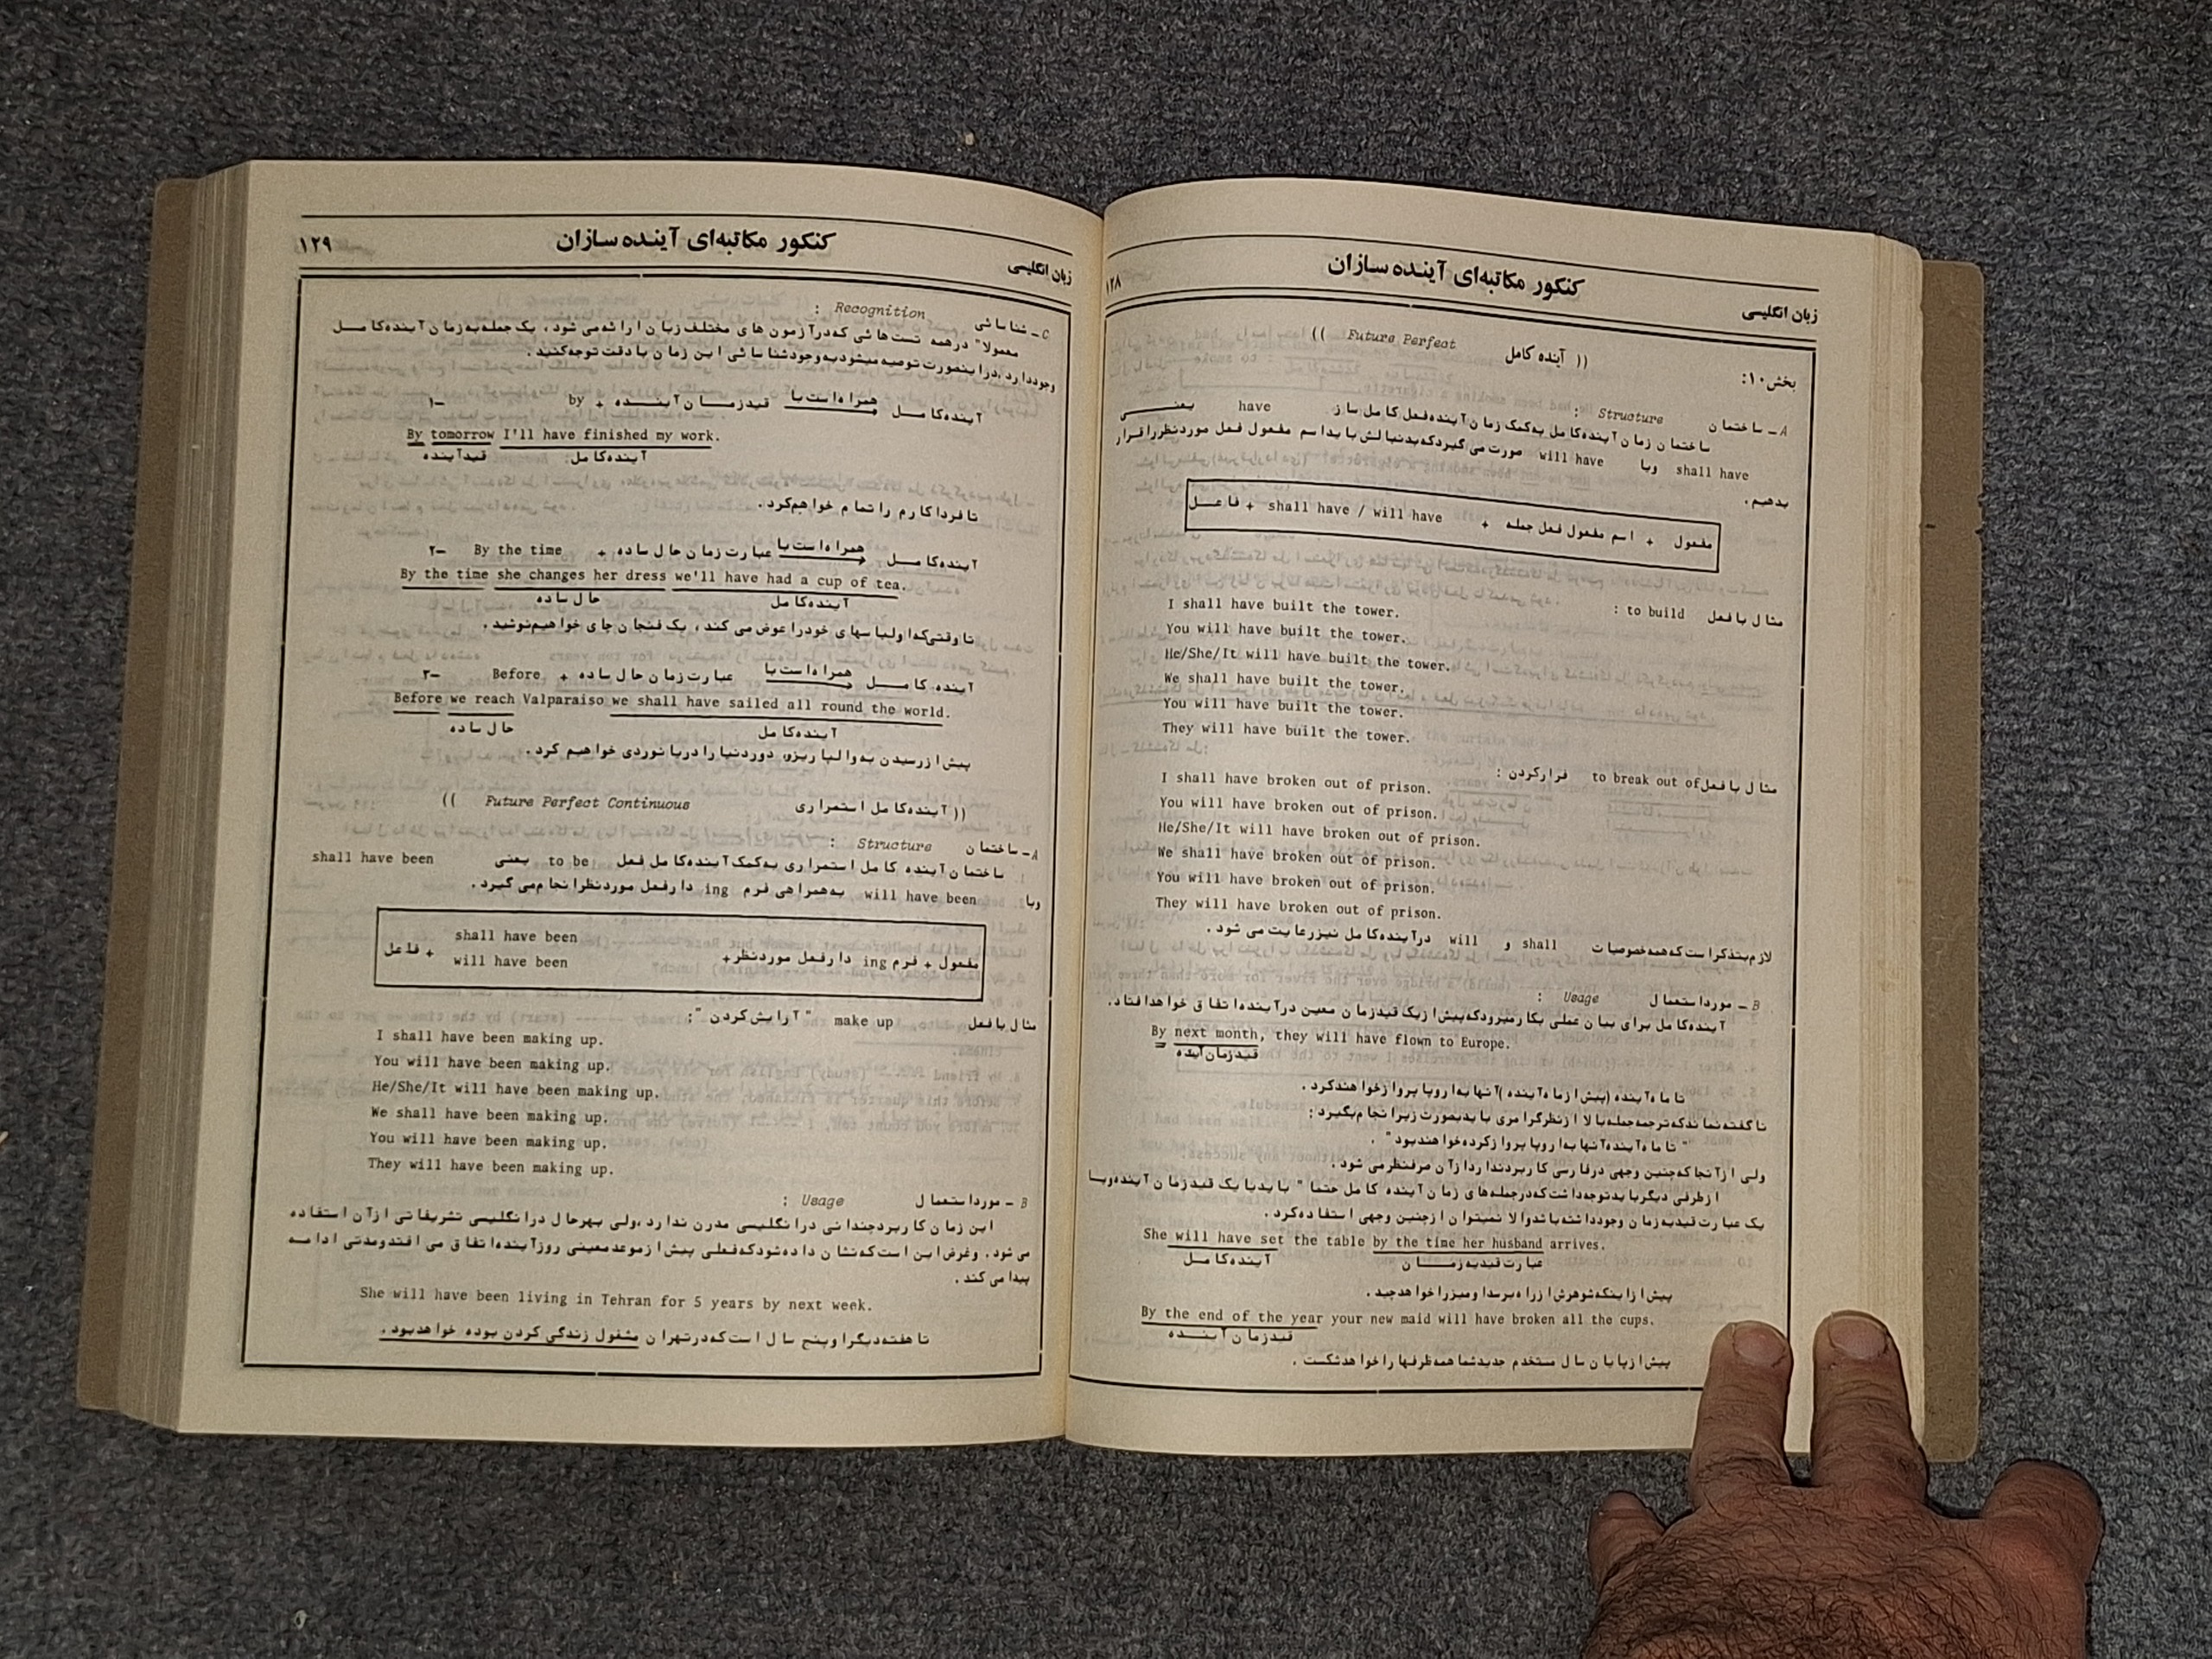 کنکور مکاتبه‌ای آینده سازان
زبان انگلیسی
۱۲۸
بخش۱۰:
(( آینده کامل Future Perfect ))
A ـ ساختمان Structure :
ساختمان زمان آینده کامل به کمک زمان آینده فعل کامل ساز have یعنی
shall have ویا will have صورت می گیرد که بدنبالش باید اسم مفعول فعل موردنظر را قرار
بدهیم .
فاعل + shall have / will have + اسم مفعول فعل جمله + مفعول
مثال با فعل to build :
I shall have built the tower.
You will have built the tower.
He/She/It will have built the tower.
We shall have built the tower.
You will have built the tower.
They will have built the tower.
مثال با فعل to break out of فرارکردن :
I shall have broken out of prison.
You will have broken out of prison.
He/She/It will have broken out of prison.
We shall have broken out of prison.
You will have broken out of prison.
They will have broken out of prison.
لازم بتذکر است که همه خصوصیات shall و will درآینده کامل نیز رعایت می شود .
B ـ مورد استعمال Usage :
آینده کامل برای بیان عملی بکار میرود که پیش از یک قید زمان معین در آینده اتفاق خواهد افتاد.
By next month, they will have flown to Europe.
قید زمان آینده
تا ماه آینده (پیش از ماه آینده )آنها به اروپا پرواز خواهند کرد .
ناگفته نماند که ترجمه جمله بالا از نظر گرامری باید بصورت زیر انجام بگیرد :
" تا ماه آینده آنها به اروپا پرواز کرده خواهند بود" .
ولی از آنجا که چنین وجهی در فارسی کاربرد ندارد از آن صرفنظر می شود .
از طرفی دیگر باید توجه داشت که در جمله های زمان آینده کامل حتما " باید یا یک قید زمان آینده ویا
یک عبارت قید به زمان وجود داشته باشد والا نمیتوان از چنین وجهی استفاده کرد .
She will have set the table by the time her husband arrives.
آینده کامل عبارت قید به زمان
پیش از اینکه شوهرش از راه برسد او میز را خواهد چید .
By the end of the year your new maid will have broken all the cups.
قید زمان آینده
پیش از پایان سال مستخدم جدید شما همه ظرفها را خواهد شکست .
کنکور مکاتبه‌ای آینده سازان
زبان انگلیسی
۱۲۹
C ـ شناسائی Recognition :
معمولا" در همه تست هائی که در آزمون های مختلف زبان ارائه می شود ، یک جمله به زمان آینده کامل
وجود دارد ,در اینصورت توصیه میشود به وجود شناسائی این زمان با دقت توجه کنید .
۱ـ آینده کامل همراه است با قید زمان آینده + by
By tomorrow I'll have finished my work.
قید آینده آینده کامل
تا فردا کارم را تمام خواهم کرد .
۲ـ آینده کامل همراه است با عبارت زمان حال ساده + By the time
By the time she changes her dress we'll have had a cup of tea.
حال ساده آینده کامل
تا وقتی که او لباسهای خود را عوض می کند ، یک فنجان چای خواهیم نوشید .
۳ـ آینده کامل همراه است با عبارت زمان حال ساده + Before
Before we reach Valparaiso we shall have sailed all round the world.
حال ساده آینده کامل
پیش از رسیدن به والپاریزو، دور دنیا را دریا نوردی خواهیم کرد .
(( آینده کامل استمراری Future Perfect Continuous ))
A ـ ساختمان Structure :
ساختمان آینده کامل استمراری به کمک آینده کامل فعل to be یعنی shall have been
ویا will have been به همراهی فرم ing دار فعل موردنظر انجام می گیرد .
shall have been
فاعل + مفعول + فرم ing دار فعل موردنظر+
will have been
مثال با فعل make up " آرایش کردن ":
I shall have been making up.
You will have been making up.
He/She/It will have been making up.
We shall have been making up.
You will have been making up.
They will have been making up.
B ـ مورد استعمال Usage :
این زمان کاربرد چندانی در انگلیسی مدرن ندارد ,ولی بهر حال در انگلیسی تشریفاتی از آن استفاده
می شود . و غرض این است که نشان داده شود که فعلی پیش از موعد معینی روز آینده اتفاق می افتد و مدتی ادامه
پیدا می کند .
She will have been living in Tehran for 5 years by next week.
تا هفته دیگر او پنج سال است که در تهران مشغول زندگی کردن بوده خواهد بود .